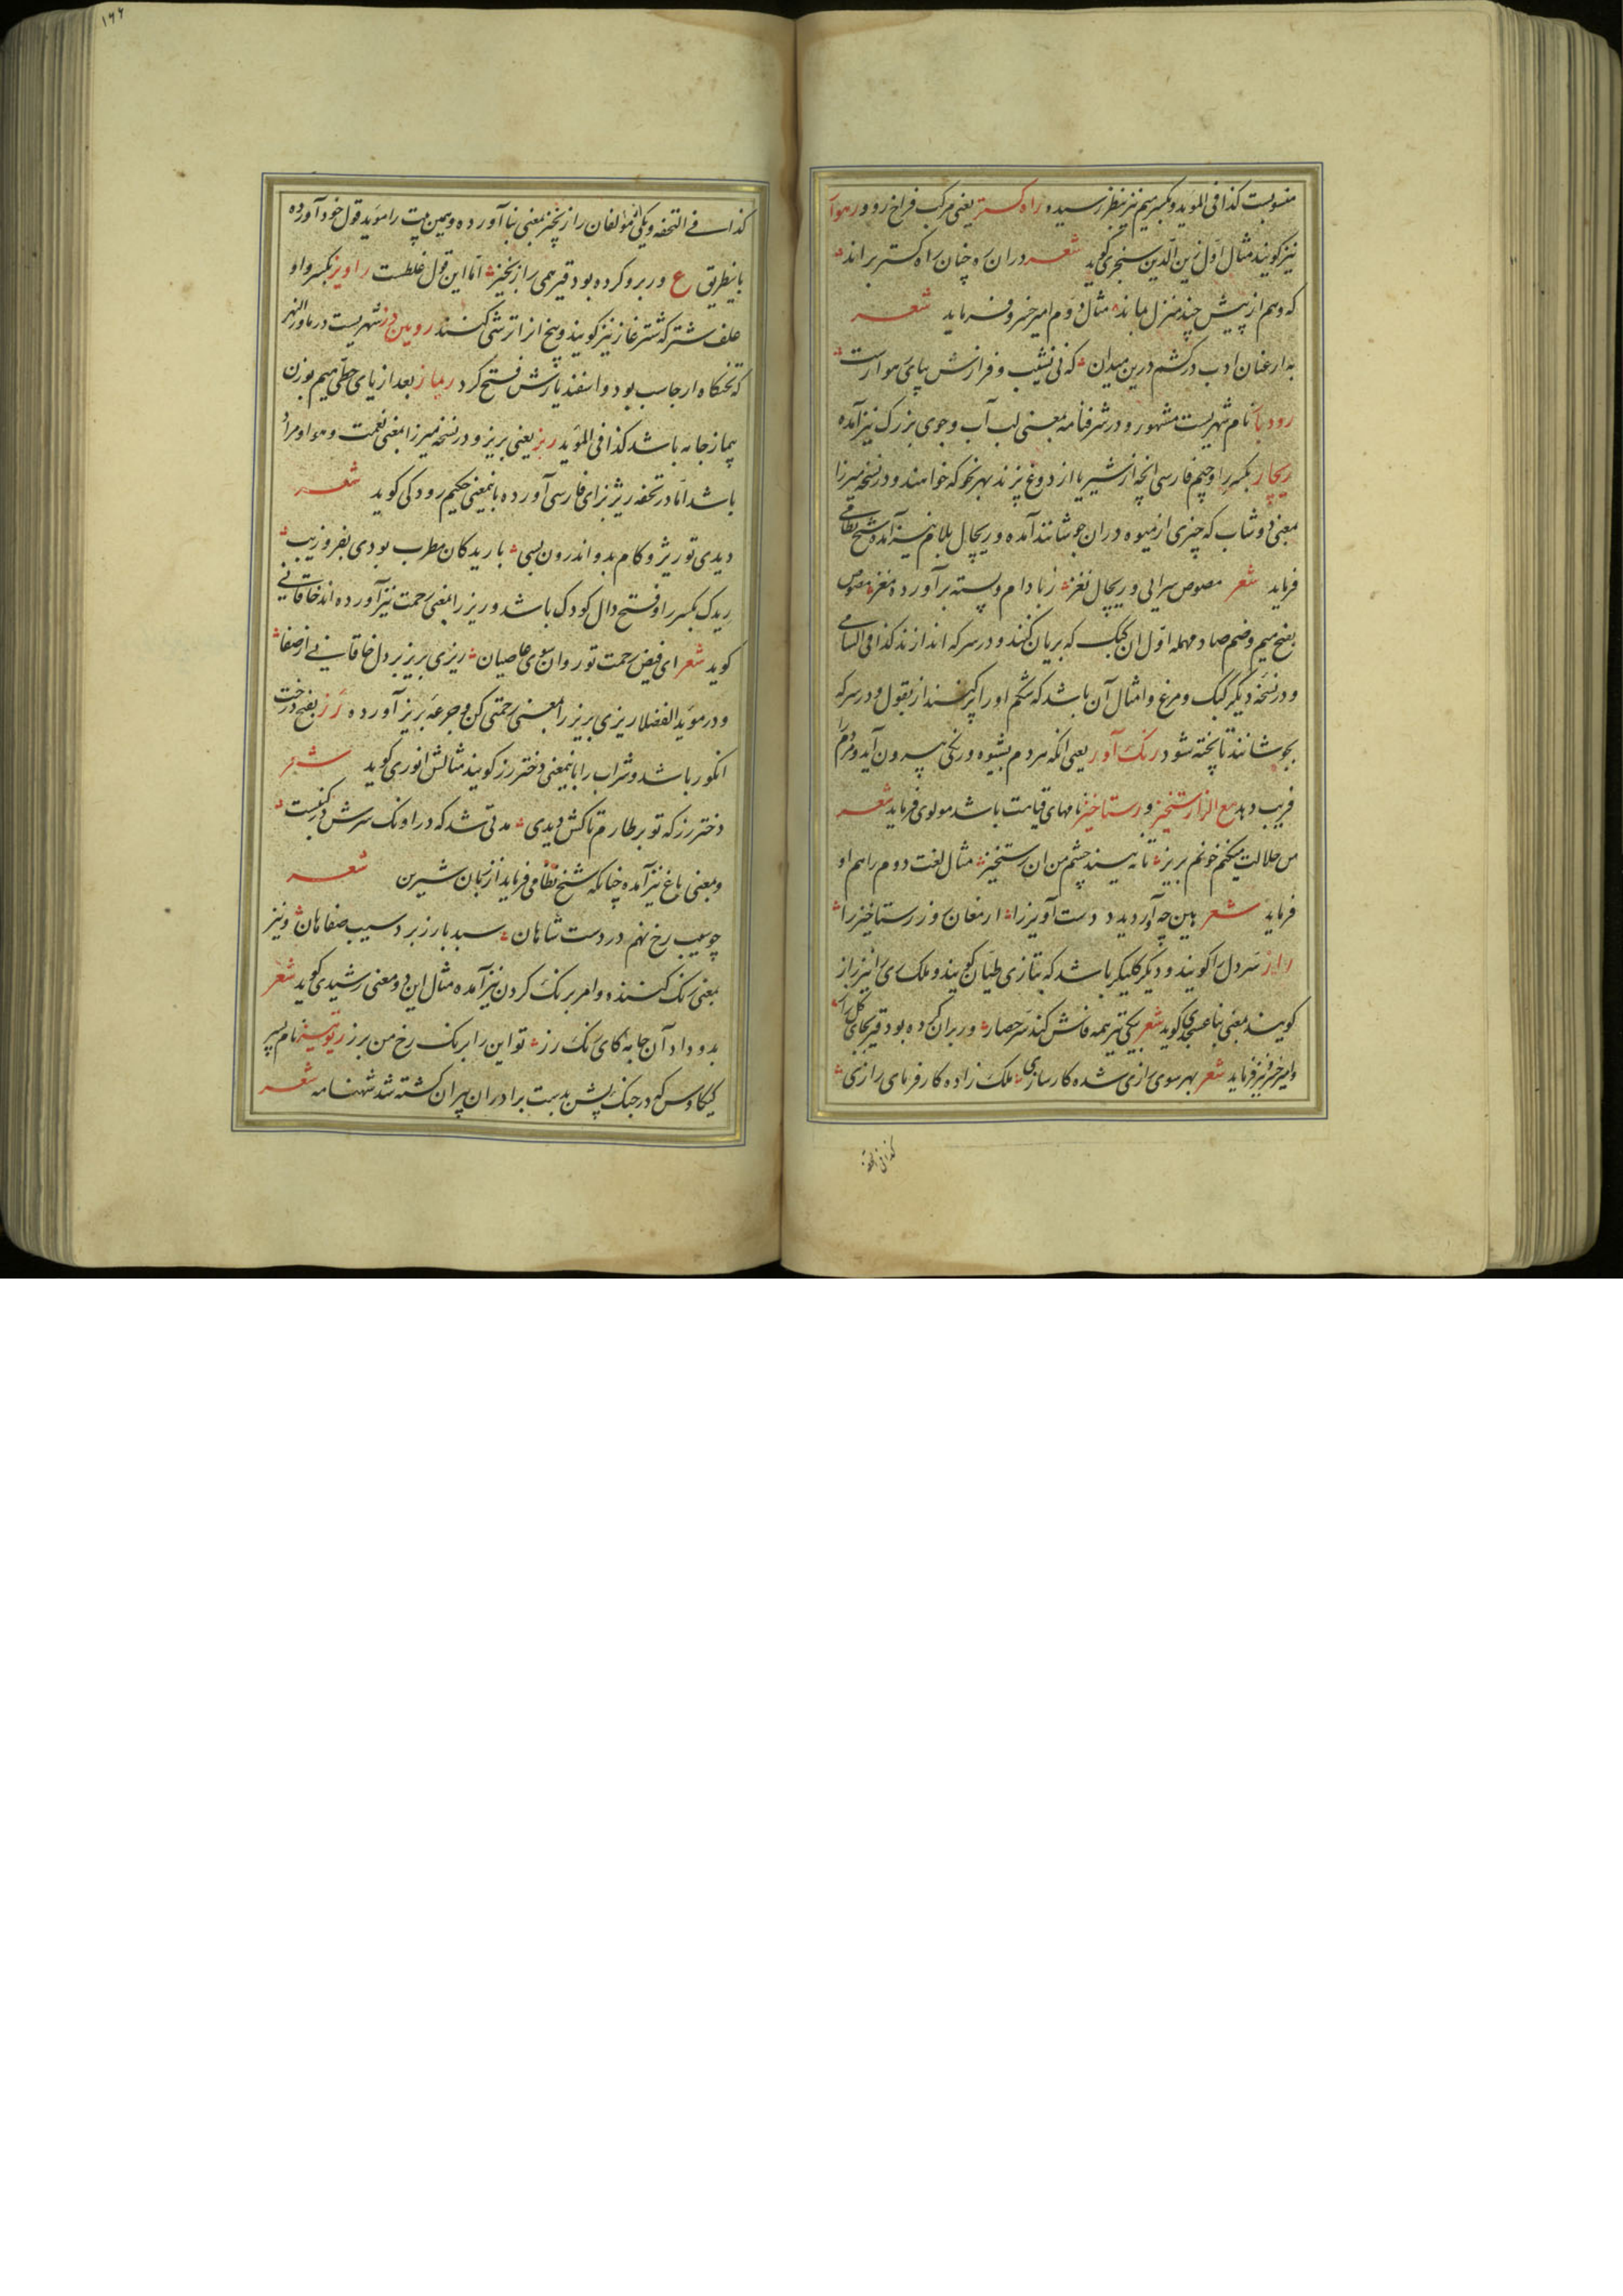 منسوبست کذا فی المؤید و بکسر میم نیز بنظر رسیده راه کستر یعنی مرکب فراخ رو و رهوار
نیز کویند مثال اول زین الدین سنجری کوید شعر دران ره چنان راه کستر براند
که وهم از پیش چند منزل بماند مثال دوم امیر خسرو فرماید شعر
به ارغنان ادب در کشم درین میدان که نی نشیب و فرازش بپای هوارست
رودبار نام شهریست مشهور و در شرفنامه بمعنی لب آب و جوی بزرک نیز آمده
ریچار بکسر را و جیم فارسی انچه از شیر یا از دوغ پزند بهر نحو که خواهند و در نسخه میرزا
بمعنی دوشاب که چیزی از میوه دران جوشانند آمده و ریچال بلام نیز آمده شیخ نظامی
فرماید شعر مصوص سرایی و ریچال نغز زبادام و پسته برآورده مغز مصوص
بفتح میم و ضم صاد مهمله اول ان کبک که بریان کنند و در سرکه اندازند کذا فی السامی
و در نسخه دیگر کبک و مرغ و امثال آن باشد که شکم او را پر کنند از بقول و در سرکه
بجوشانند تا پخته شود رنک آور یعنی انکه هر دم بشیوه و رنکی بیرون آید و مردم را
فریب دهد مع الزا رستخیز و رستاخیز نامهای قیامت باشد مولوی فرماید شعر
من حلالت میکنم خونم بریز تا نه بیند چشم من ان رستخیز مثال لغت دوم را هم او
فرماید شعر هین چه آوردید دست آویز را ارمغان روز رستاخیز را
راز سردل را کویند و دیگر کلیکر باشد که بتازی طیان کویند و ملک ری را نیز راز
کویند بمعنی بنا عسجدی کوید شعر یکی تیر همه فاش کند سر حصار ور بران کرده بود قیر بجای کل راز
و امیر خسرو نیز فرماید شعر بهر سوی رازی شده کارسازی ملک زاده کارفرمای رازی
کذا فی التحفه
۱۶۶
کذا فی التحفه و یکی از مؤلفان راز بخیز بمعنی بنا آورده و همین بیت را مؤید قول خود آورده
باینطریق ع ور برو کرده بود قیر همی راز بخیز اما این قول غلطست راویز بکسر واو
علف شتر که شتر غاز نیز کویند و بیخ انرا ترشی کنند رویین دز شهریست در ماورالنهر
که تختکاه ارجاسب بود و اسفندیارش فتح کرد ریماز بعد از یای حطی میم بوزن
پیماز جامه باشد کذا فی المؤید ریز یعنی بریز و در نسخه میرزا بمعنی نعمت و هوا و مراد
باشد اما در تحفه ریژ بزای فارسی آورده باینمعنی حکیم رودکی کوید شعر
دیدی تو ریژ و کام بدو اندرون بسی با ریدکان مطرب بودی بفر و زیب
ریدک بکسر را و فتح دال کودک باشد و ریز را بمعنی رحمت نیز آورده اند خاقانی
کوید شعر ای فیض رحمت تو روان سوی عاصیان ریزی بریز بر دل خاقانی از صفا
و در مؤید الفضلا ریزی بریز را بمعنی رحمتی کن و جرعه بریز آورده رز بفتح درخت
انکور باشد و شراب را باینمعنی دختر رز کویند مثالش انوری کوید شعر
دختر رز که تو بر طارم تاکش دیدی مدتی شد که در اونک سرش در کنبست
و بمعنی باغ نیز آمده چنانکه شیخ نظامی فرماید از زبان شیرین شعر
چو سیب رخ نهم در دست شاهان سبد بارز برد سیب صفاهان و نیز
بمعنی رنک کننده و امر بر رنک کردن نیز آمده مثال این دو معنی رشیدی کوید شعر
بدو داد آن جامه کای رنک رز تو این را برنک رخ من برز ریونیز نام پسر
کیکاوس که در جنک پشن بدست برادران پیران کشته شد شهنامه شعر